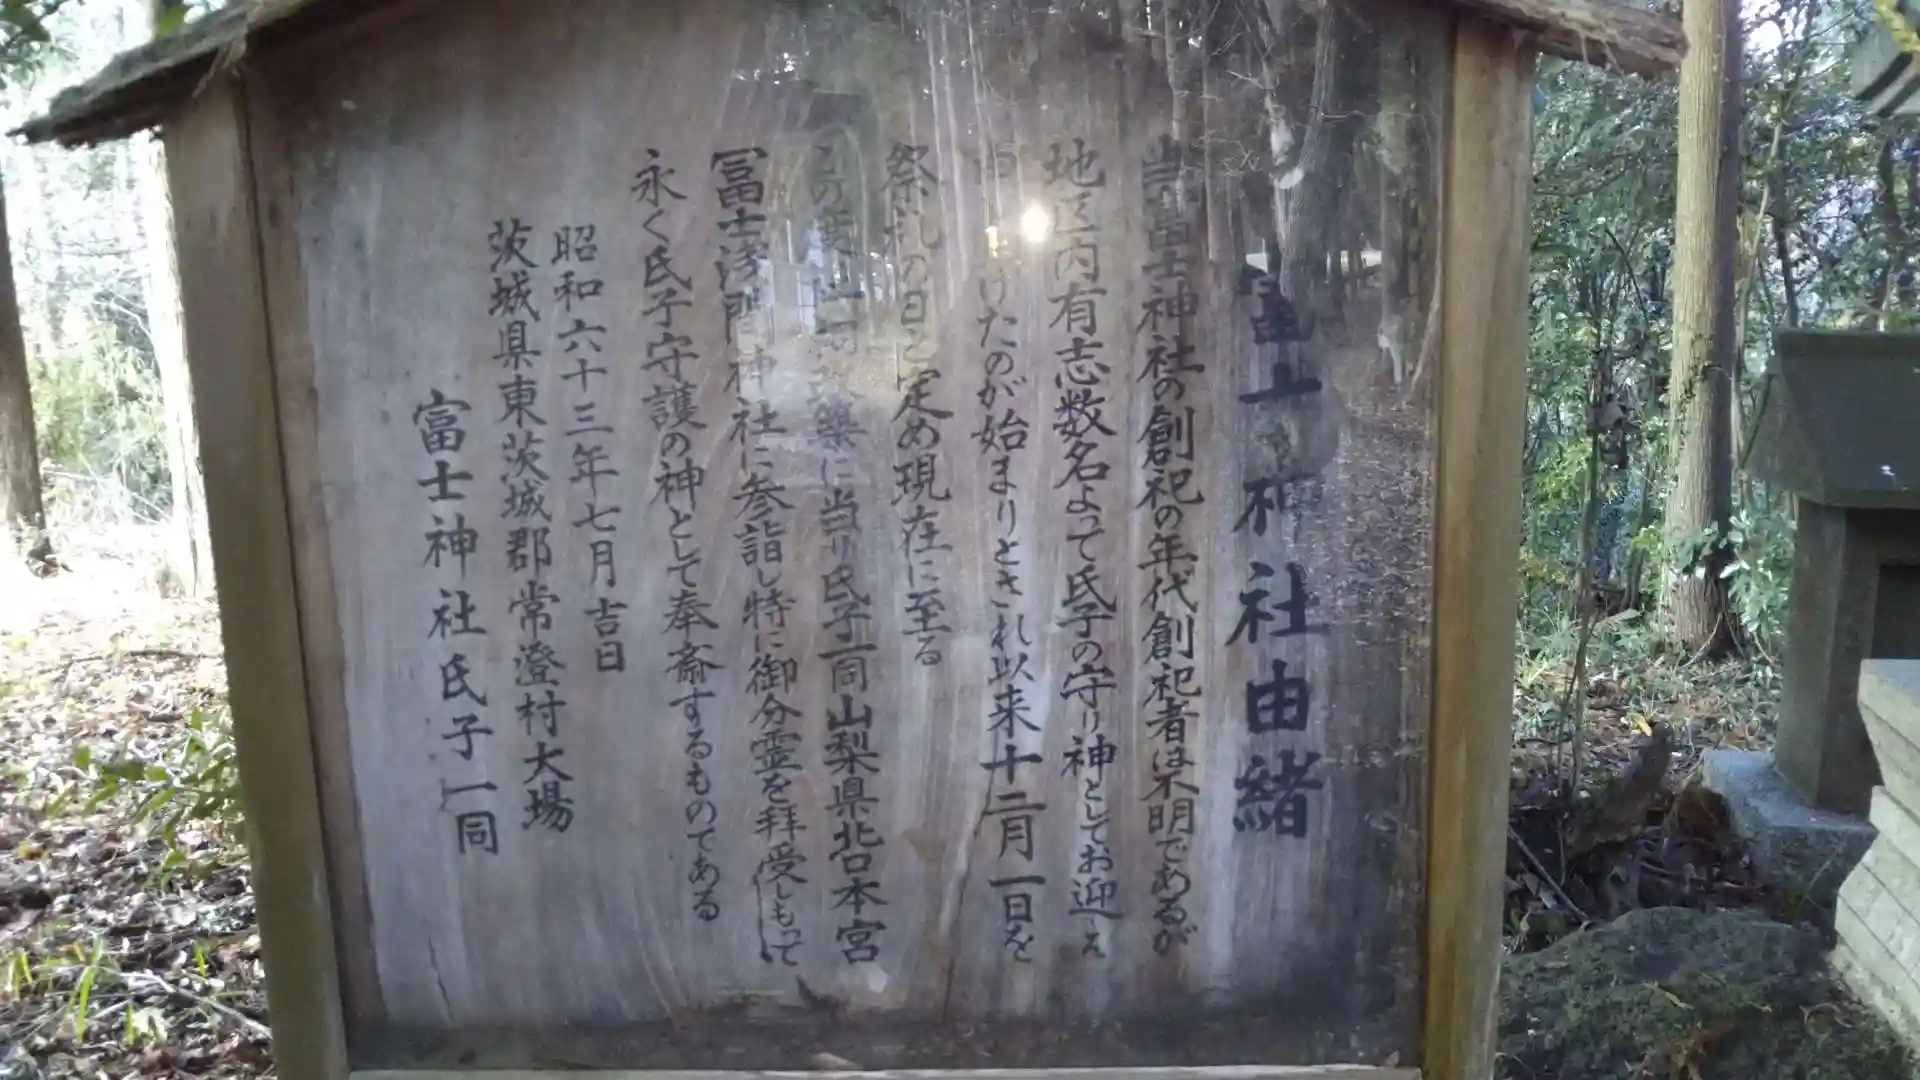 富士神社由緒
当富士神社の創祀の年代創祀者は不明であるが
地区内有志数名よって氏子の守り神としてお迎え
けたのが始まりとされ以来十二月一日を
祭礼の日と定め現在に至る
この度改築に当り氏子一同山梨県北口本宮
冨士浅間神社に参詣し特に御分霊を拝受しもって
永く氏子守護の神として奉斎するものである
昭和六十三年七月吉日
茨城県東茨城郡常澄村大場
富士神社氏子一同